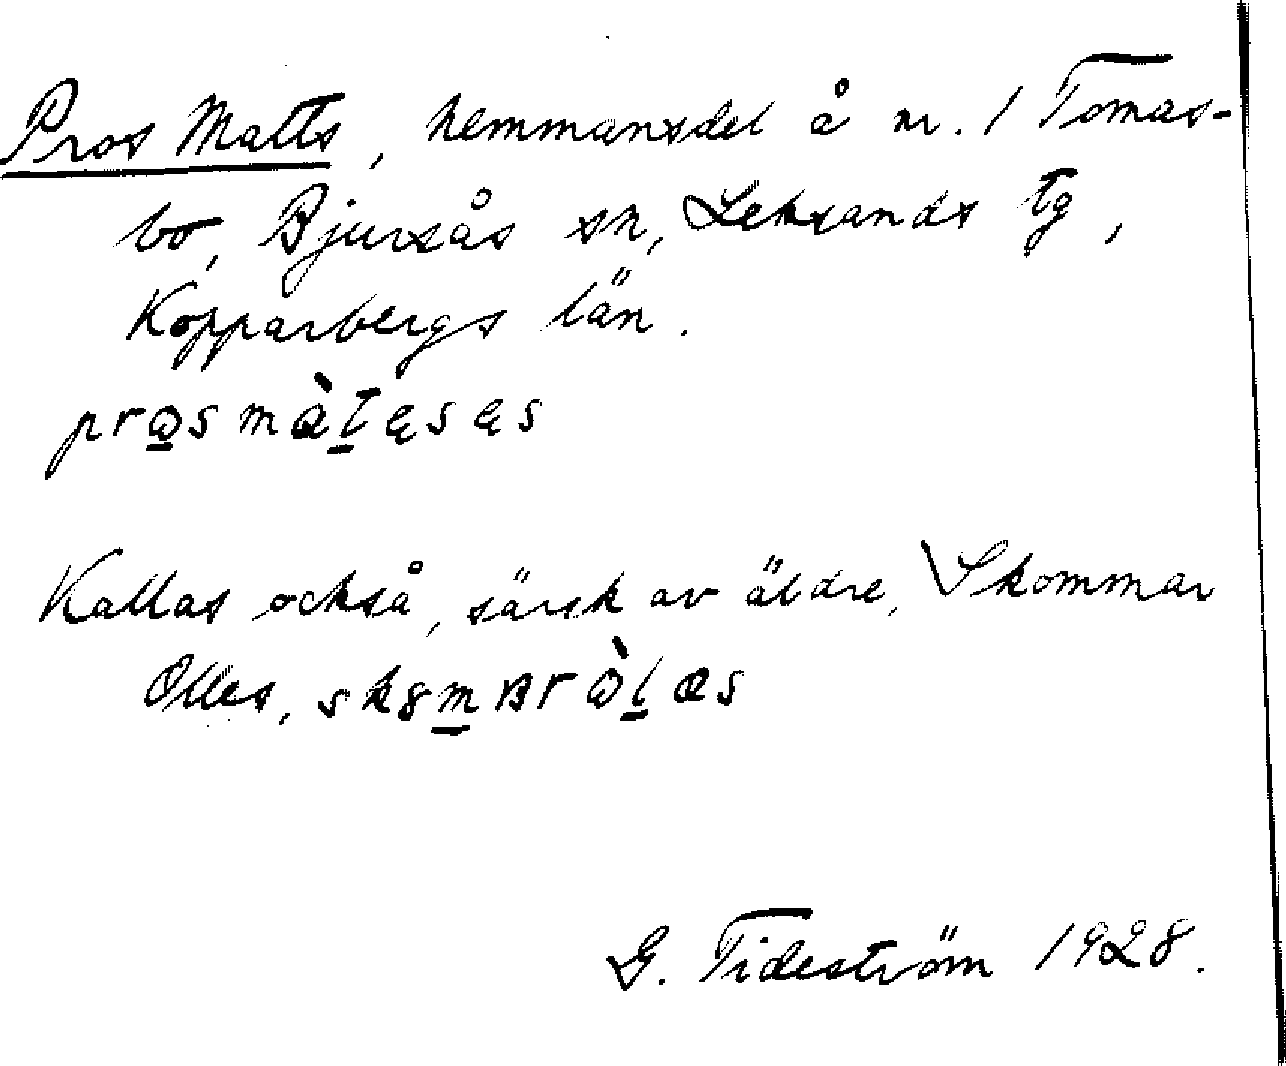 Pros Matts, hemmansdel å nr. 1 Tomas-
bo, Bjursås sn, Leksands tg,
Kopparbergs län.
prɷs màtęsęs
Kallas också, särsk av äldre, \Skommar
Olles, sk8mʙrɷ̀læs
G. Tideström 1928.